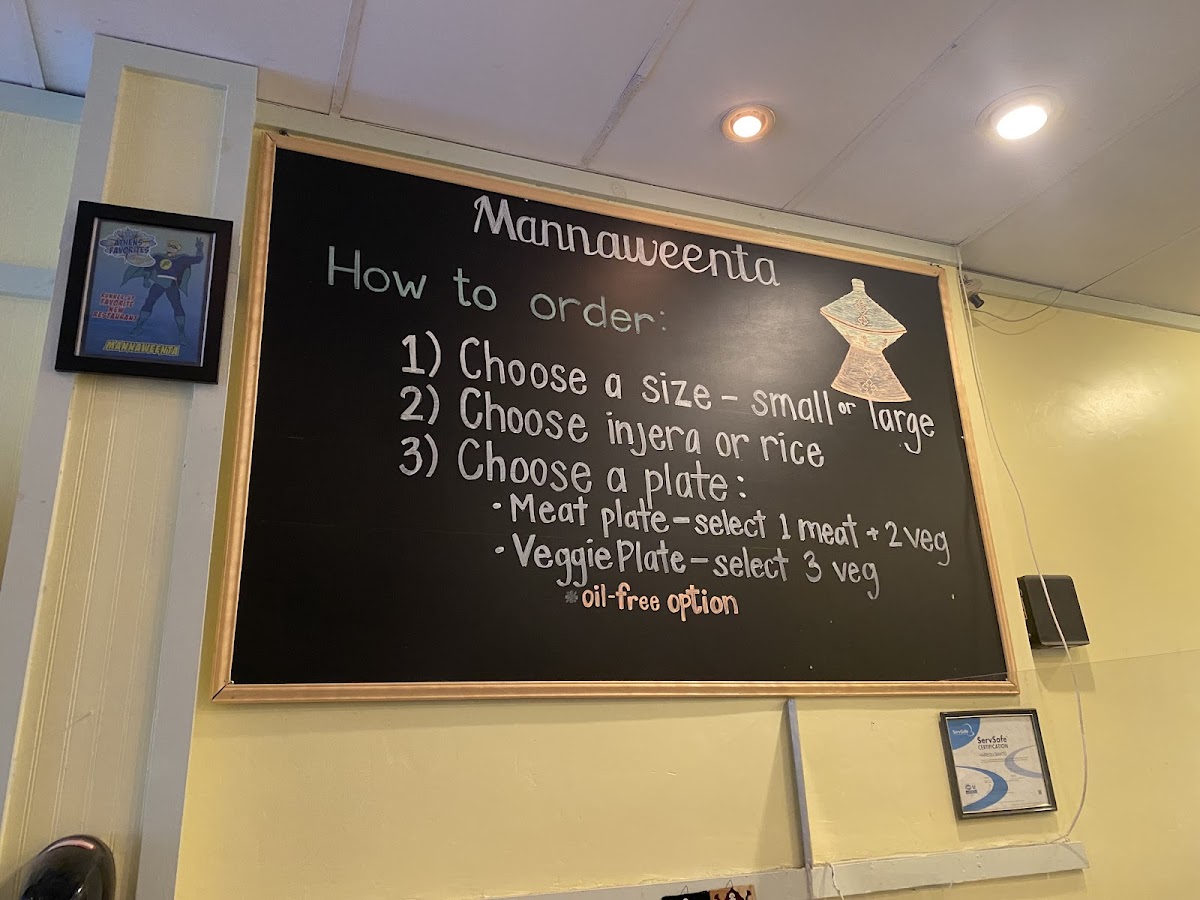 Mannaweenta
How to order:
1) Choose a size - small or large
2) Choose injera or rice
3) Choose a plate:
• Meat plate - select 1 meat + 2 veg
• Veggie Plate - select 3 veg
*oil-free option
ATHENS
FAVORITES
FAVORITE
NEW
RESTAURANT
MANNAWEENTA
ServSafe
ServSafe
CERTIFICATION